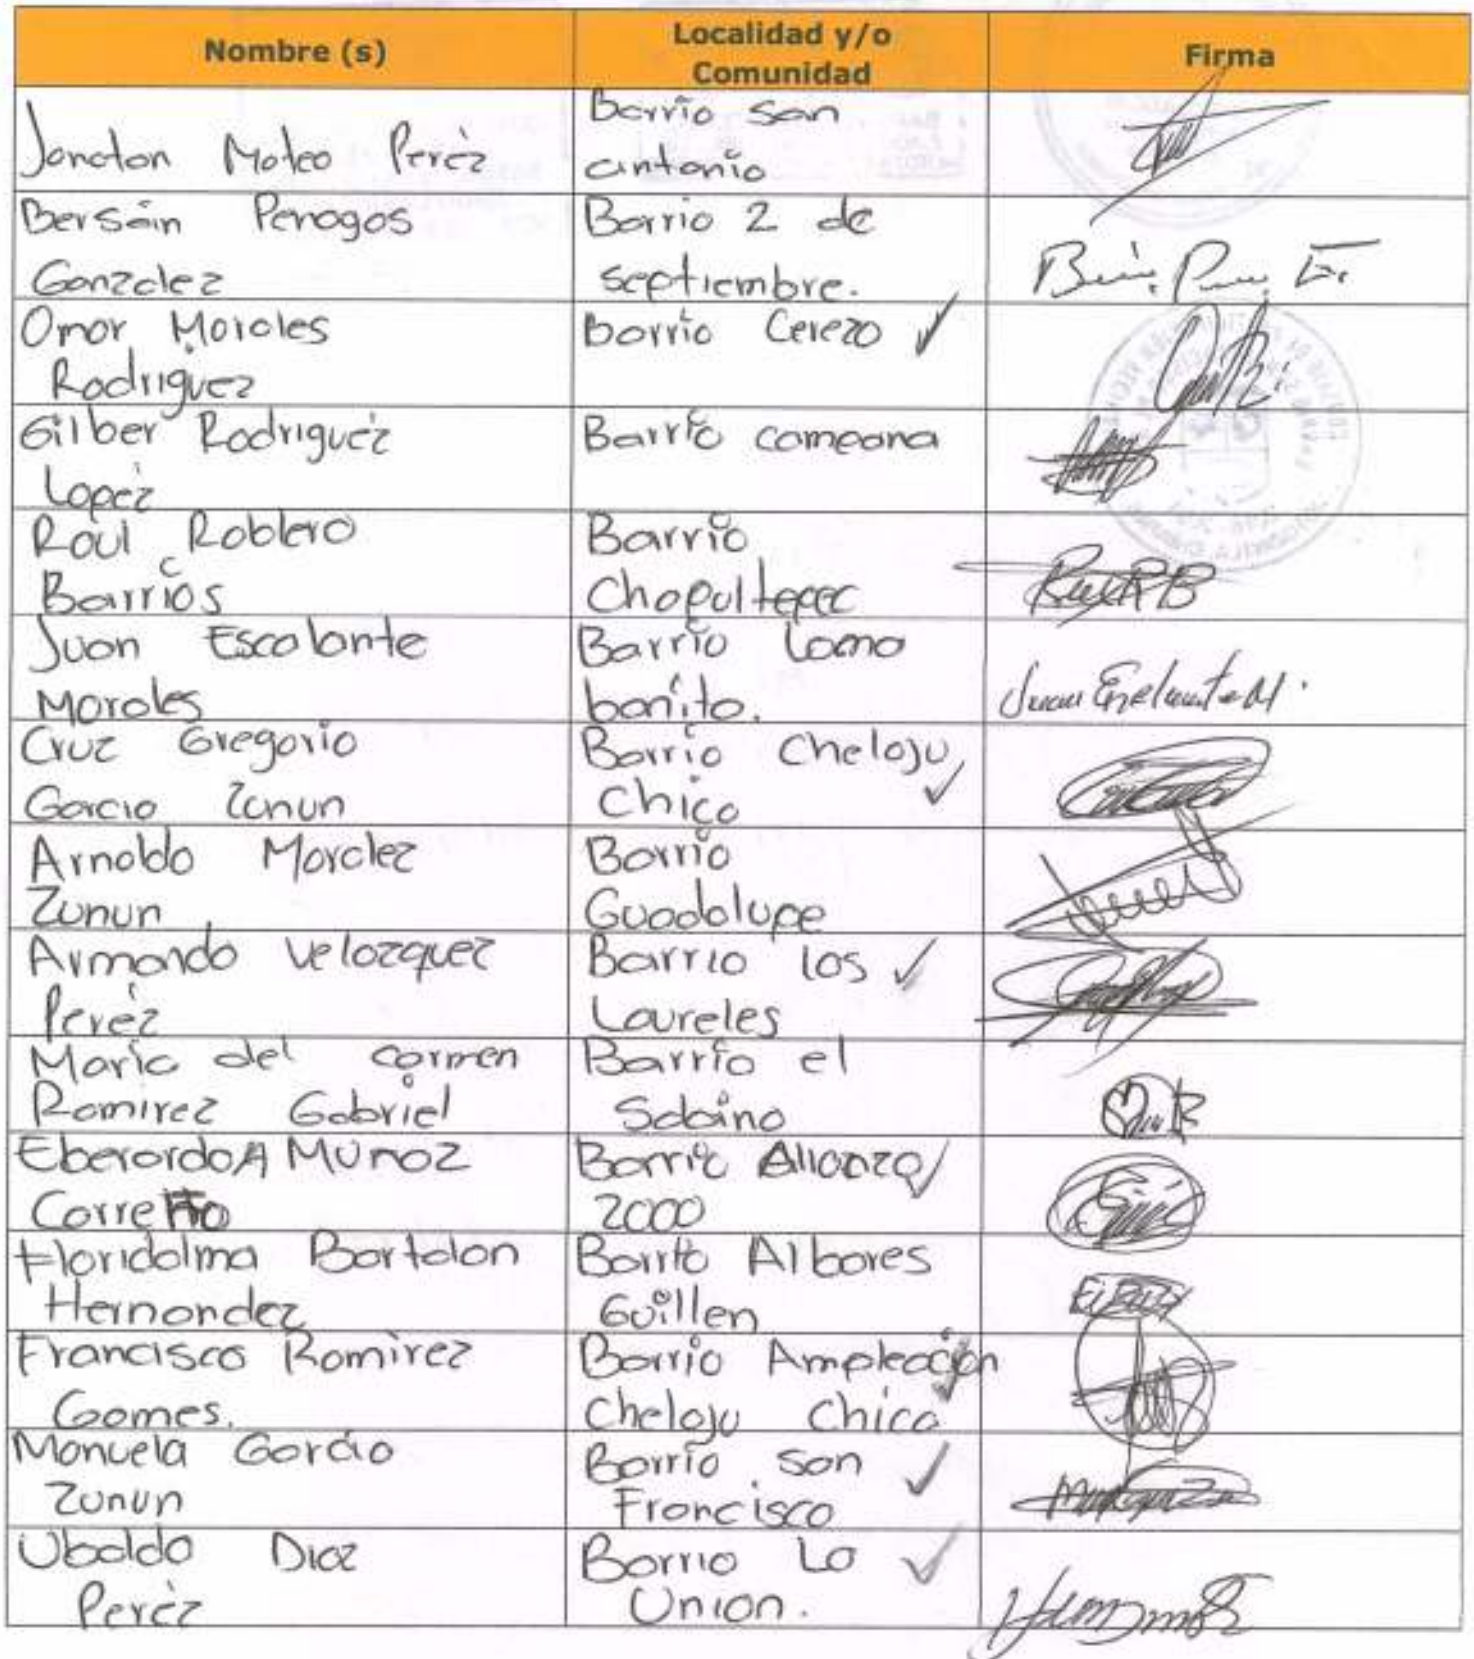 Nombre (s)
Localidad y/o
Comunidad
Firma
Jonatan Mateo Peréz
Barrio san
antonio
Bersáin Penagos
Gonzalez
Barrio 2 de
septiembre.
Omar Morales
Rodriguez
Barrio Cerezo ✓
Gilber Rodriguez
Lopez
Barrio campana
Raul Roblero
Barrios
Barrio
Chapultepec
Juan Escalante
Morales
Barrio Loma
bonita.
Juan Escalante M.
Cruz Gregorio
Garcia Zunun
Barrio Chelaju
Chico ✓
Arnoldo Moralez
Zunun
Barrio
Guadalupe
Armando Velazquez
Peréz
Barrio los ✓
Laureles
Maria del carmen
Ramirez Gabriel
Barrio el
Sabino
Eberardo A Muñoz
Barrio Alianza ✓
2000
Floridalma Bartolon
Hernandez
Barrio Albores
Guillen
Francisco Ramirez
Gomes.
Barrio Ampleación
Chelaju Chico ✓
Manuela Garcia
Zunun
Barrio san ✓
Francisco
Ubaldo Diaz
Peréz
Barrio La ✓
Union.